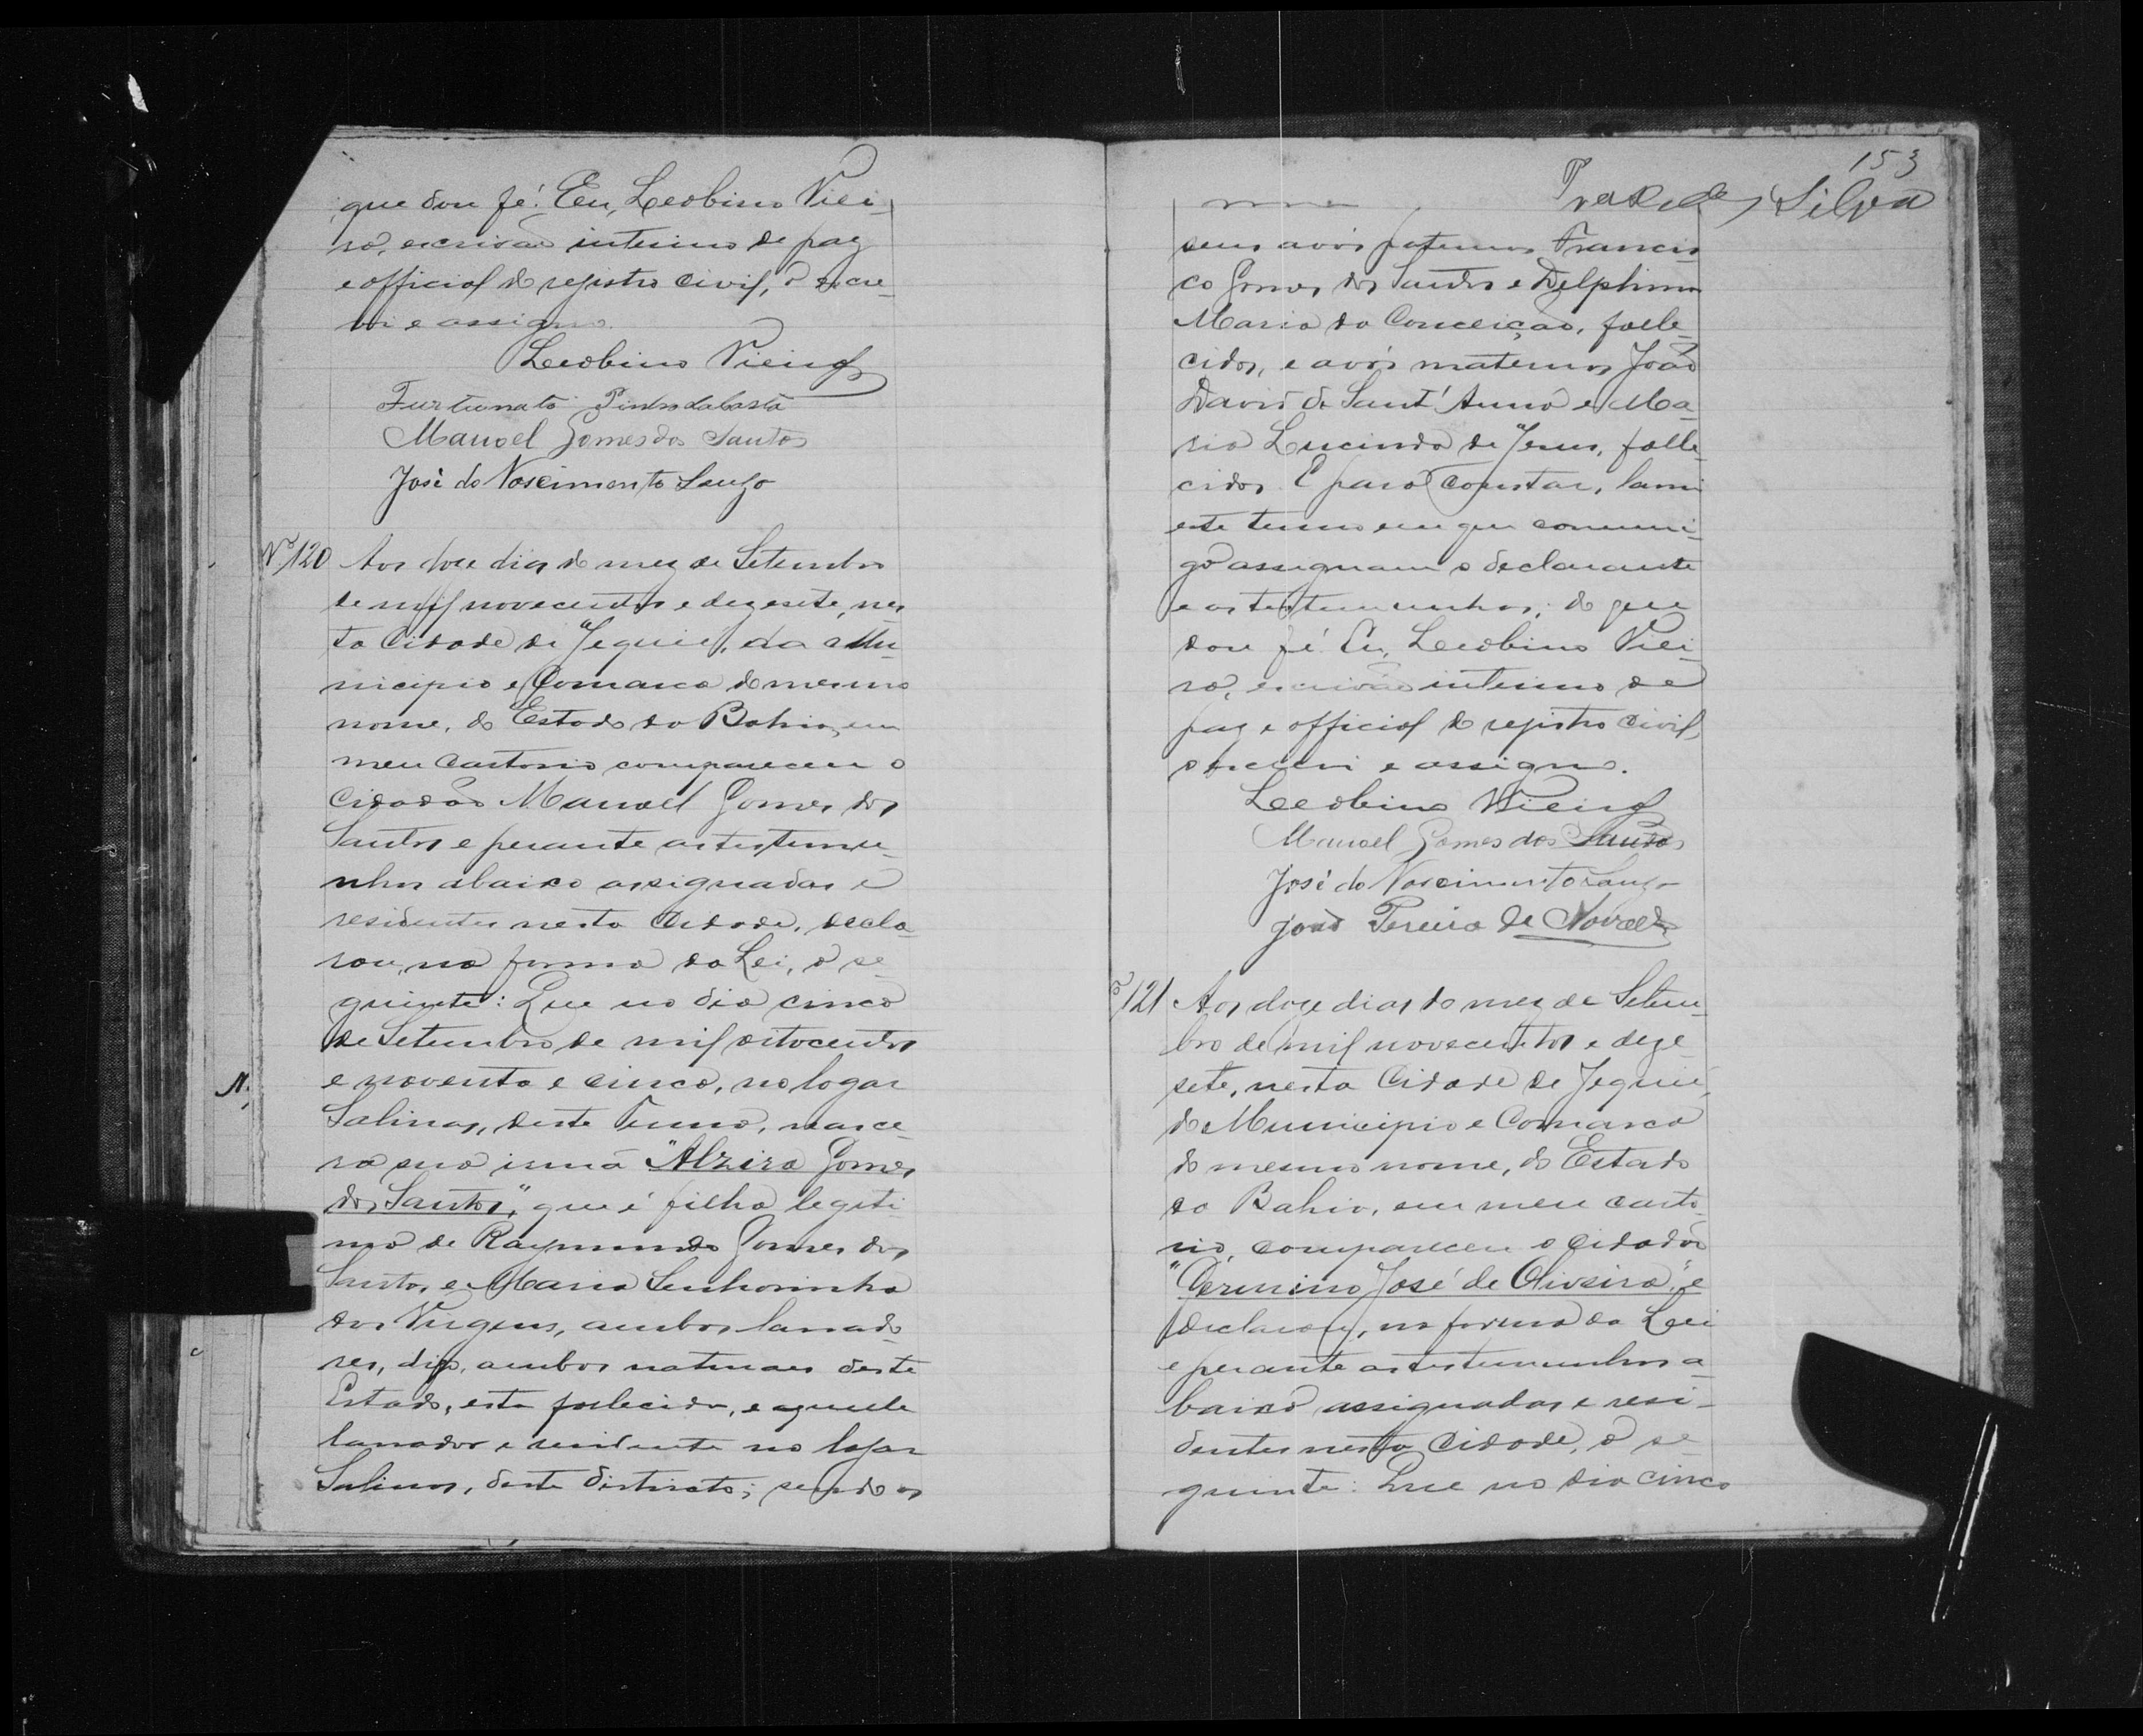 que dou fé. Eu, Leobino Viei-
ra, escrivão interino de paz
e official do registro civil, o escre-
vi e assigno.
Leobino Vieira
Furtunato Pinto da Costa
Manoel Gomes dos Santos
José do Nascimento Souza
Nº 120 Aos doze dias do mez de Setembro
de mil novecentos e dezesete, nes-
ta Cidade de Jequié, do Mu-
nicipio e Comarca do mesmo
nome, do Estado da Bahia, em
meu Cartorio compareceu o
Cidadão Manoel Gomes dos
Santos e perante as testemu-
nhas abaixo assignadas e
residentes nesta Cidade, decla-
rou, na forma da Lei, o se-
guinte: Que no dia cinco
de Setembro de mil oitocentos
N. e noventa e cinco, no logar
Salinas, deste Termo, nasce-
ra sua irmã "Alzira Gomes
dos Santos", que é filha legiti-
ma de Raymundo Gomes dos
Santos e Maria Senhorinha
das Virgens, ambos lavrado-
res, digo, ambos naturaes deste
Estado, esta fallecida, e aquelle
lavrador e residente no logar
Salinas, deste districto; sendo os
153
Praxedes Silva
seus avós paternos Francis-
co Gomes dos Santos e Delphina
Maria da Conceição, falle-
cidos, e avós maternos João
David de Sant'Anna e Ma-
ria Lucinda de Jesus, falle-
cidos. E para constar, lavrei
este termo em que commi-
go assignam o declarante
e as testemunhas; do que
dou fé. Eu, Leobino Viei-
ra, escrivão interino de
paz e official do registro civil,
o escrevi e assigno.
Leobino Vieira
Manoel Gomes dos Santos
José do Nascimento Souza
João Pereira de Novaes
º 121 Aos doze dias do mez de Setem-
bro de mil novecentos e deze-
sete, nesta Cidade de Jequié,
do Municipio e Comarca
do mesmo nome, do Estado
da Bahia, em meu carto-
rio, compareceu o Cidadão
"Germino José de Oliveira", e
declarou, na forma da Lei
e perante as testemunhas a-
baixo assignadas e resi-
dentes nesta Cidade, o se-
guinte: Que no dia cinco